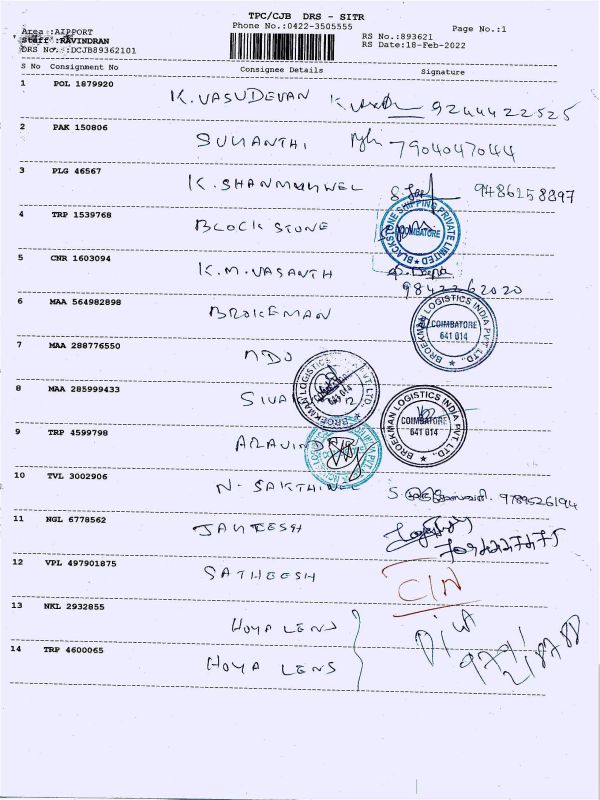 TPC/CJB DRS - SITR
Phone No.:0422-3505555
Page No.:1
Area :AIRPORT
Staff :RAVINDRAN
DRS No. :DCJB89362101
RS No.:893621
RS Date:18-Feb-2022
S No Consignment No Consignee Details Signature
1 POL 1879920 K. VASUDEVAN 9244422525
2 PAK 150806 SUMANTHI 7904047044
3 PLG 46567 K. SHANMUNWEL 9486158897
4 TRP 1539768 BLOCK STONE
BLACKSTONE SHIPPING PRIVATE LIMITED
COIMBATORE
5 CNR 1603094 K.M. VASANTH
9842262020
6 MAA 564982898 BROKEMAN
BROEKMAN LOGISTICS INDIA PVT. LTD.,
COIMBATORE
641 014
7 MAA 288776550 MDU
BROEKMAN LOGISTICS PVT LTD.
641 014
8 MAA 285999433 SIVA
BROEKMAN LOGISTICS INDIA PVT. LTD.,
COIMBATORE
641 014
9 TRP 4599798 ARAVIND
10 TVL 3002906 N. SAKTHIVEL 9789526194
11 NGL 6778562 JAYEESH
12 VPL 497901875 SATHEESH
13 NKL 2932855 HOYA LENS
14 TRP 4600065 HOYA LENS